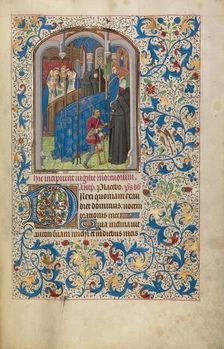 hic incipiunt vigilie mortuorum
Antip. Placebo. ps d
Dilexi quoniam exau
diet dominus: vocem
orationis mee
Quia inclinavit
aurem suam michi et in diebus meis